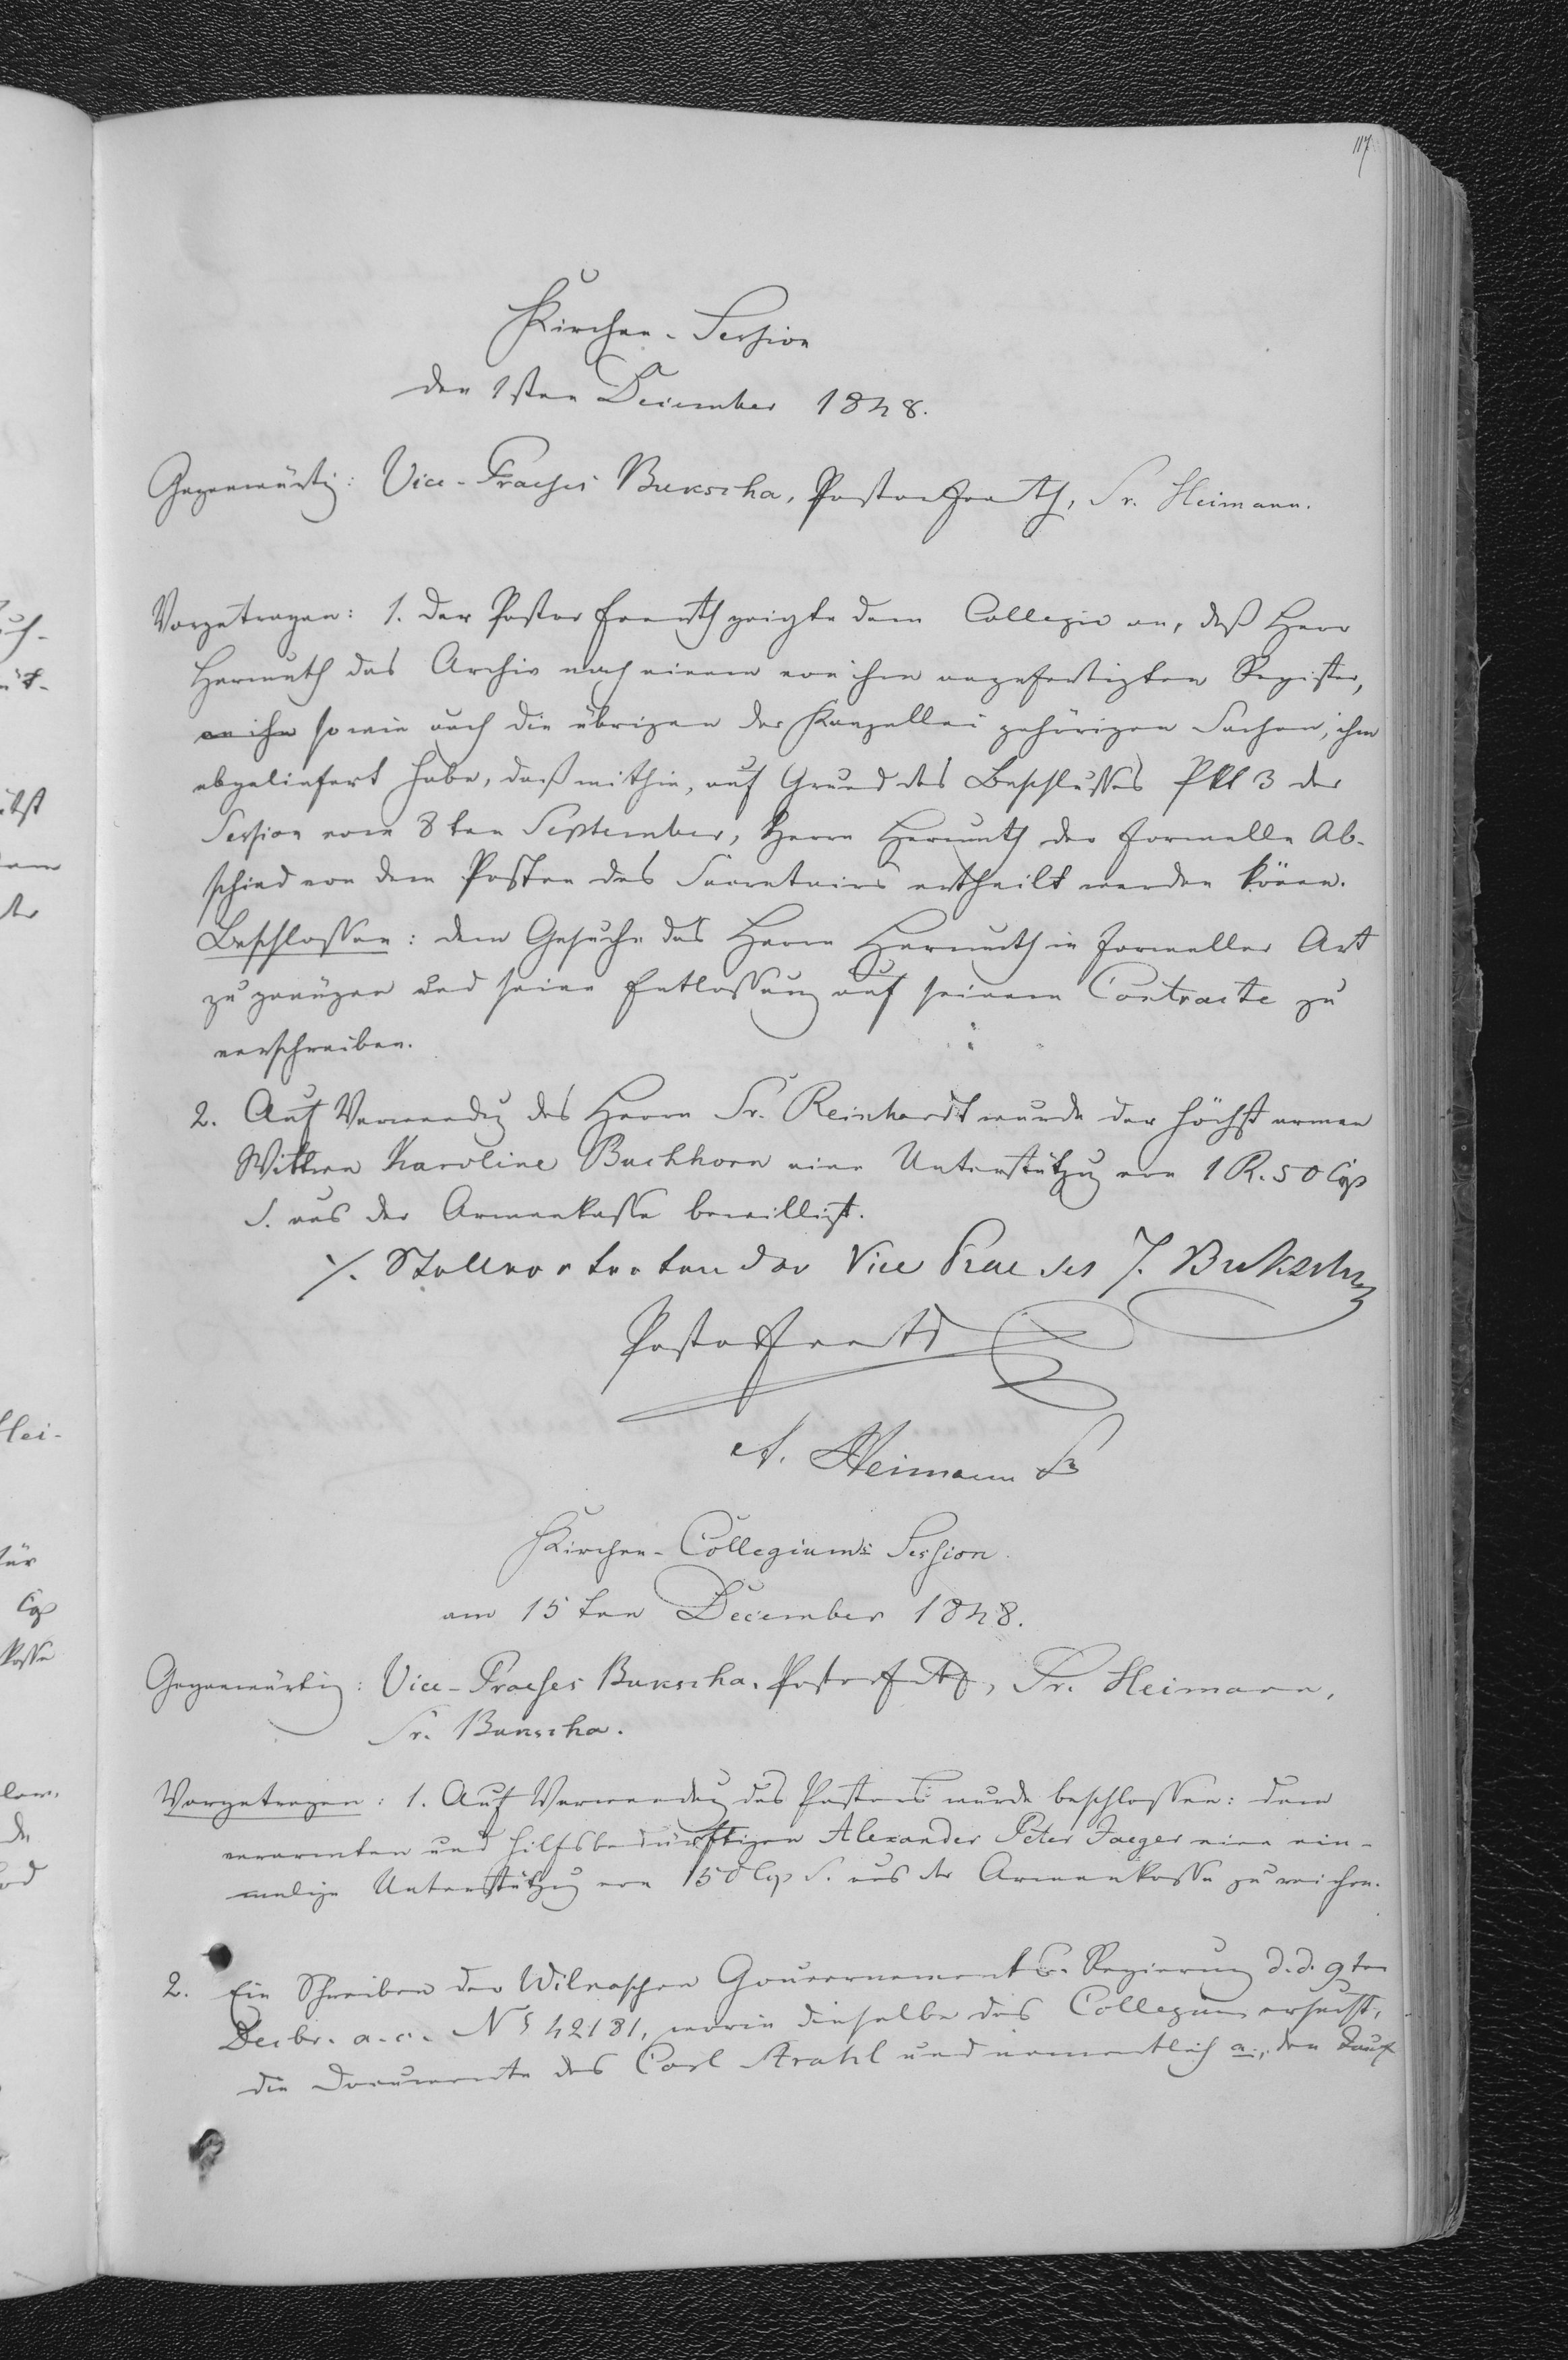 117
Kirchen-Session
den 1sten December 1848.
Gegenwärtig: Vice-Praeses Bukscha, Pastor Fromth, Sr. Heimann.
Vorgetragen: 1. der Pastor Fromth zeigte dem Collegio an, daß Herr
Hermuth das Archiv nach einem von ihm angefertigten Register,
an ihn sowie auch die übrigen der Kanzellei gehörigen Sachen, ihm
abgeliefert habe, daß mithin, auf Grund des Beschlusses Pkt 3 der
Session vom 8ten September, Herrn Hermuth der formelle Ab-
schied von dem Posten des Secretairs ertheilt werden könne.
Beschlossen: dem Gesuche des Herrn Hermuth in formeller Art
zu genügen und seine Entlassung auf seinem Contracte zu
verschreiben.
2. Auf Verwendg des Herrn Sr. Reinhardt wurde der höchst armen
Wittwe Karoline Buchhorn eine Unterstützug von 1 R. 50 Cop
S. aus der Armenkasse bewilligt.
Stellvertretender Vice Praeses J. Bukscha
Pastor Fromth
A. Heimann
Kirchen-Collegiums Session.
am 15ten December 1848.
Gegenwärtig: Vice-Praeses Bukscha, Pastor Fth, Sr. Heimann,
Sr. Bukscha.
Vorgetragen: 1. Auf Verwendug des Pastors wurde beschlossen: dem
verarmten und hilfsbedürftigen Alexander Peter Jaeger eine ein-
malige Unterstützug von 150 Cop S. aus der Armenkasse zu reichen.
2. Ein Schreiben der Wilnaschen Gouvernements-Regierung d. d. 9ten
Decbr. a. c. N 42181, worin dieselbe das Collegium ersucht,
die Documente des Carl Strahl und namentlich a., den Tauf